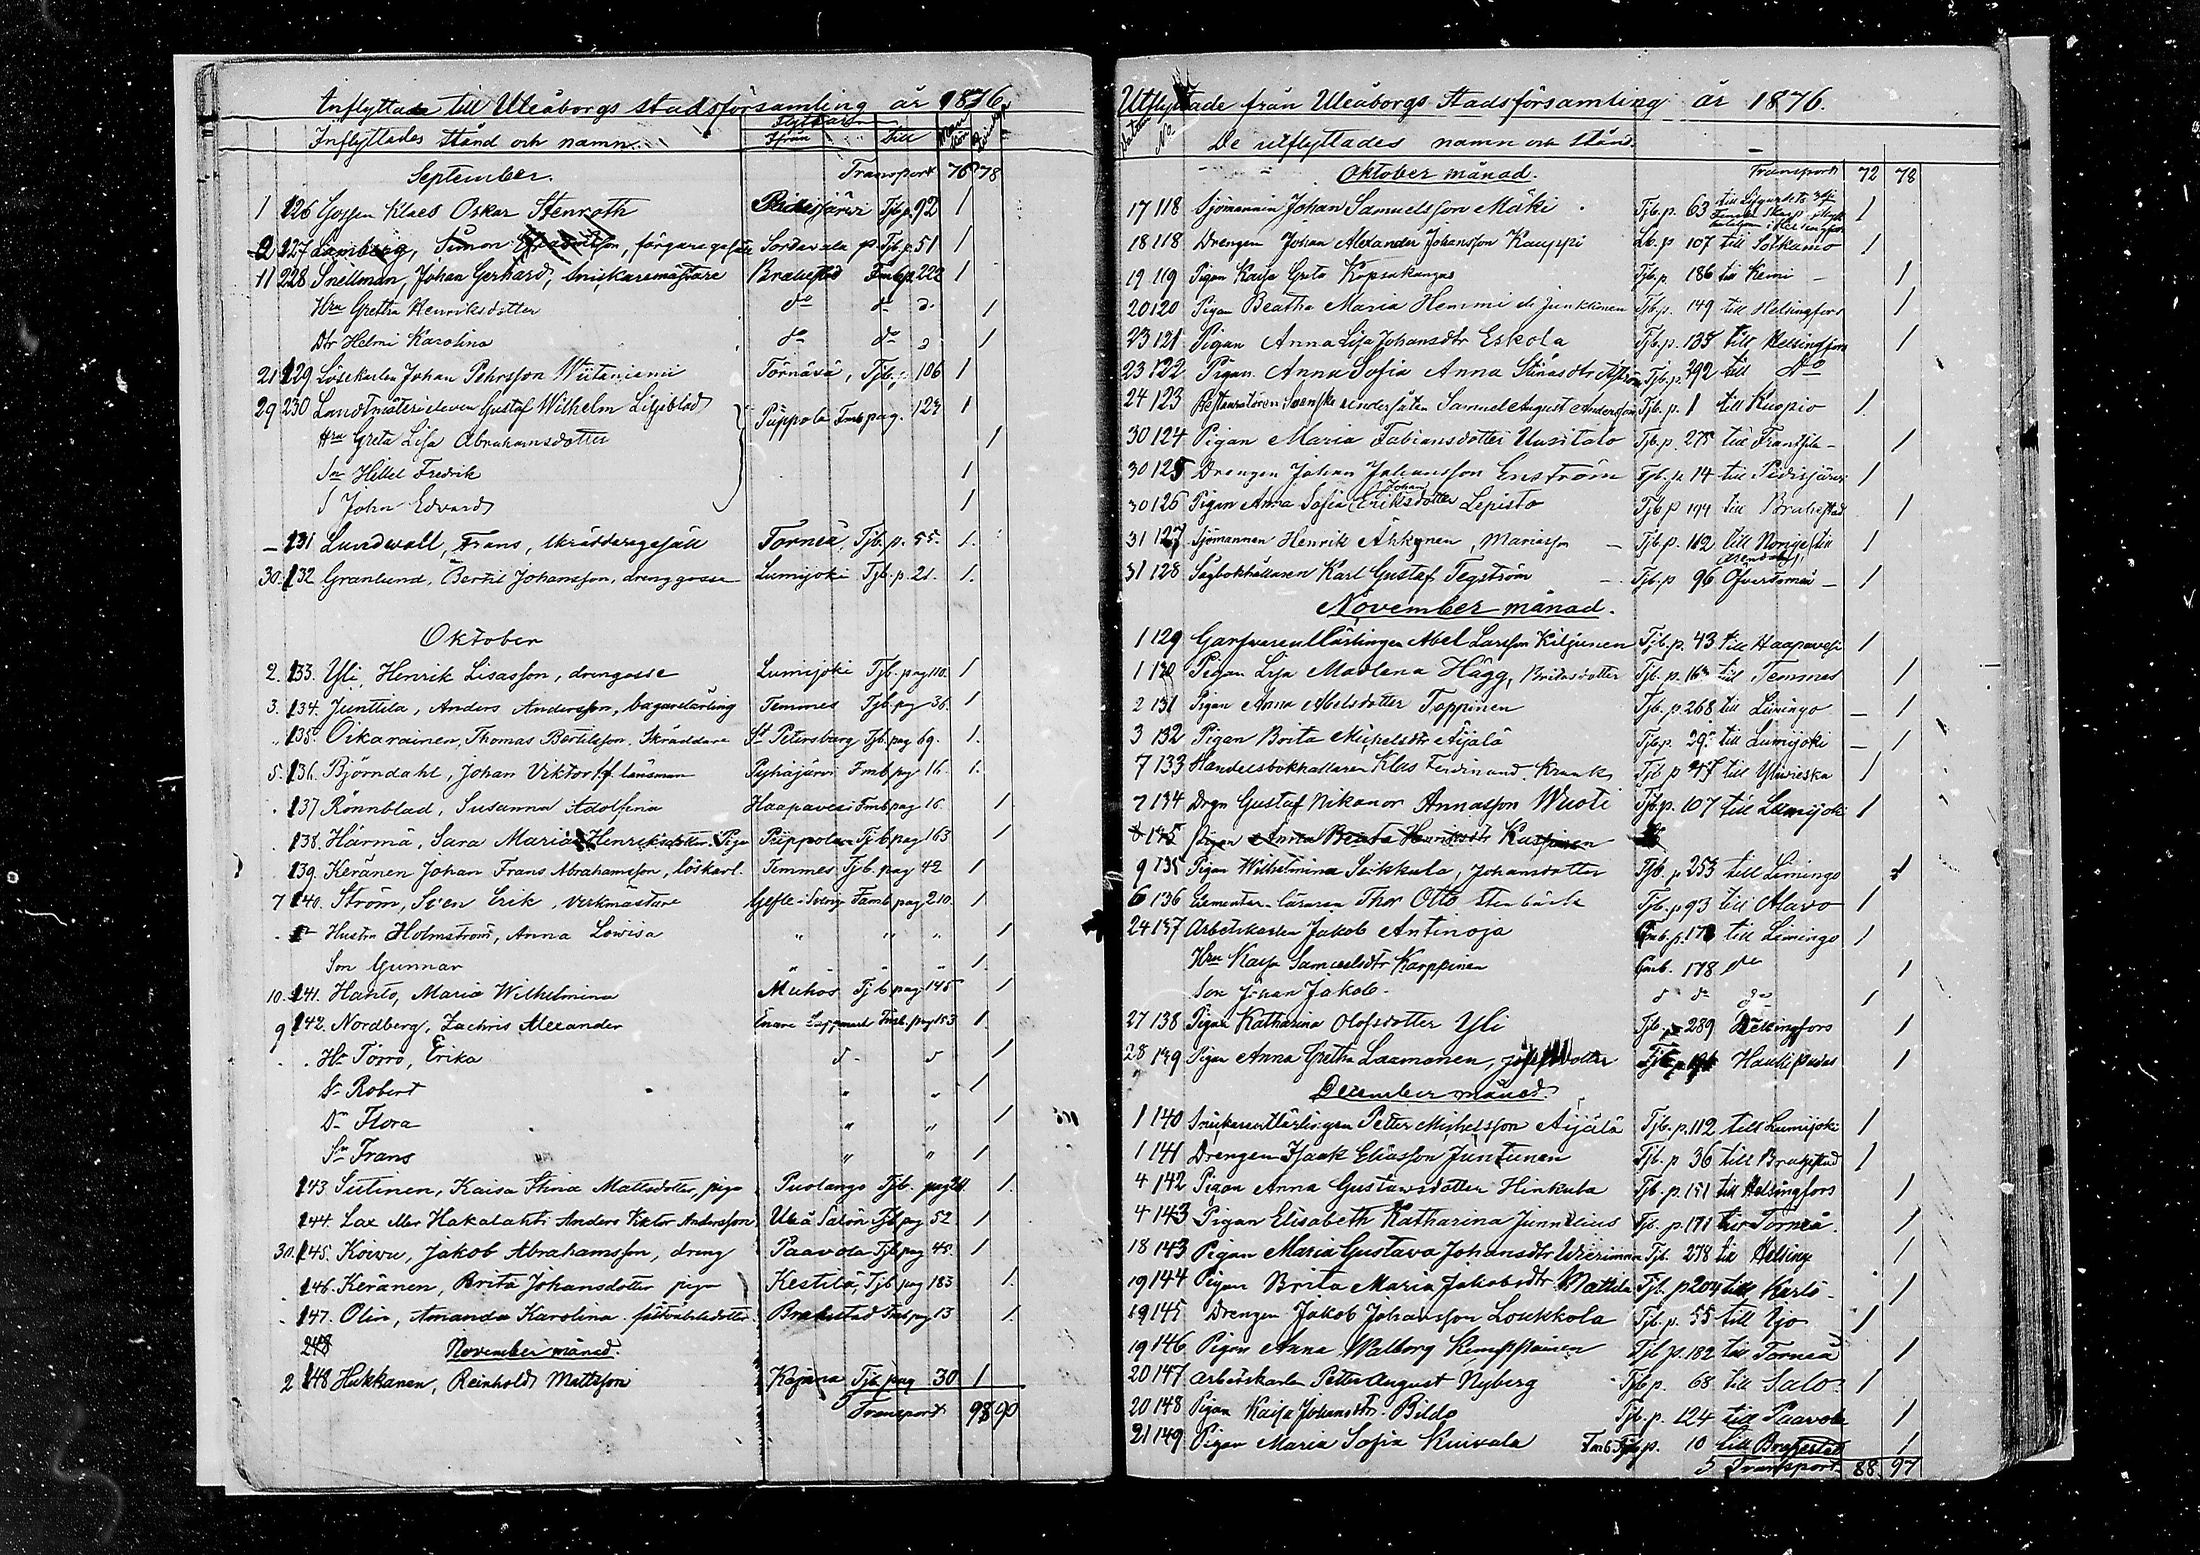 Inflyttade till Uleåborgs stadsförsamling år 1876.
Inflyttades stånd och namn. Flyttat Ifrån till Mankön Qvinkön
September. Transport 76 78
1 126 Gossen Klaes Oskar Stenroth Pidisjärvi Tjb.p. 92 1
2 227 Lamberg, Simon färgaregesäll Sordavala p. Tjb.p. 51 1
11 228 Snellman, Johan Gerhard, Snickaremästare Brahestad Fmb.p. 222 1
Hru Gretha Henriksdotter do do 1
Dtr Helmi Karolina do do 1
21 129 Löskarlen Johan Pehrsson Wiitaniemi Törnävä, Tjb.p. 106 1
29 230 Landtmäterieleven Gustaf Wilhelm Liljeblad Piippola Fmb pag. 123 1
Hru Greta Lisa Abrahamsdotter 1
Sn Hillel Fredrik 1
S John Edvard 1
131 Lundwall, Frans, skräddaregesäll Torneå, Tjb.p. 55. 1.
30. 132 Granlund, Bertil Johansson, drenggosse Lumijoki Tjb.p. 21. 1.
Oktober
2. 133. Yli, Henrik Lisasson, drenggosse Lumijoki Tjb. pag 110. 1
3. 134. Junttila, Anders Andersson, bagarelärling Temmes Tjb. pg 36. 1
135. Oikarainen, Thomas Bertilsson, Skräddare St Petersburg Tjb. pag 69. 1.
5. 136. Björndahl, Johan Viktor, f. länsman Pyhäjärvi Fmb pg 16. 1.
137 Rönnblad, Susanna Adolfina Haapavesi Fmb pag 16 1
138. Härmä, Sara Maria Henriksdotter. Piga Piippola Tjb pag 163 1
139. Keränen Johan Frans Abrahamsson, löskarl. Temmes Tjb. pag 42 1
7 140. Ström, Sven Erik, Verkmästare Gefle i Sverige Famb. pag 210. 1
Hustru Holmström, Anna Lowisa " " " 1
Son Gunnar " " " 1.
10. 141. Hanto, Maria Wilhelmina Muhos Tjb pag 145 1
9 142. Nordberg, Zachris Alexander Enare Lappmark Fmb. pag 153 1.
Hu Törrö, Erika do do 1
Sn Robert " " 1
Dr Flora " " 1
Sn Frans " " 1
143. Sutinen, Kaisa Stina Mattsdotter, piga Puolango Tjb. pag 1.
144. Lax eller Hakalahti Anders Viktor Andersson Uleå Salon Tjb pg 52 1
30. 145. Koivu, Jakob Abrahamsson, dreng Paavola Tjb pag 45. 1
146. Keränen, Brita Johansdotter piga Kestilä, Tjb. pag 183 1.
147. Olin, Amanda Karolina Brahestad Fmb pg 13 1.
248 November månad.
2 148 Hukkanen, Reinhold Mattsson Kajana Tjb pag 30 1
Transport 98 90
Utflyttade från Uleåborgs Stadsförsamling år 1876.
Datum No De utflyttades namn och stånd.
Oktober månad. Transport 72 78
17 118 Sjömannen Johan Samuelsson Mäki Tjb.p. 63 1
18 118 Drengen Johan Alexander Johansson Kauppi Lb.p 107 till Sotkamo 1
19 119 Pigan Kaisa Greta Kopsakangas Tjb.p 186 till Kemi 1
20 120 Pigan Beatha Maria Hemmi de Junkkonen Tjb.p. 149 till Helsingfors 1
23 121 Pigan Anna Lisa Johansdtr Eskola Tjb.p. 135 till Helsingfors 1
23 122 Pigan Anna Sofia Anna Stinasdtr Åström Tjb.p. 292 till do
24 123 Restauratören Svenske undersåten Samuel August Andersson Tjb.p. 1 till Kuopio 1.
30 124 Pigan Maria Fabiansdotter Uusitalo Tjb.p. 275 till Frantsila 1
30 125 Drengen Johan Johansson Enström Tjb.p. 14 till Pidisjärvi 1
30 126 Pigan Anna Sofia Eriksdotter Lepistö Tjb p 194 till Brahestad 1
31 127 Sjömannen Henrik Ahkynen, Mariasson Tjb.p. 112 till Norige 1
31 128 Sågbokhållaren Karl Gustaf Tegström Tjb.p 96 Öfvertorneå 1
November månad.
1 129 Garfvarelärlingen Abel Larsson Kiljunen Tjb.p. 43 till Haapavesi 1
1 130 Pigan Lisa Madlena Hägg, Britasdotter Tjb. p. 163 till Temmes 1
2 131 Pigan Anna Abelsdotter Toppinen Tjb.p. 268 till Limingo 1
3 132 Pigan Brita Michelsdtr Äijälä Tjb.p. 29 till Lumijoki 1
7 133 Handelsbokhållaren Klas Ferdinand Krank Tjb p 47 till Ylivieska 1
7 134 Drgn Gustaf Nikanor Annasson Wuoti Tjb.p. 107 till Lumijoki 1
8 135 Pigan Anna Beata Henriksdtr Karpinen
9 135 Pigan Wilhelmina Sikkala, Johansdotter Tjb. p 253 till Limingo 1
6 136 Elementar-läraren Thor Otto Stenbäck Tjb.p 93 till Alavo 1
24 137 Arbetskarlen Jakob Antinoja Fmb.p. 178 till Limingo 1
Hru Kaisa Samuelsdtr Karppinen Fmb. 178 do 1
Son Johan Jakob. do do 1
27 138 Pigan Katharina Olofsdotter Yli Tjb. p 289 Helsingfors 1
28 139 Pigan Anna Gretha Laamanen, Josefsdotter Haukipudas 1
December månad.
1 140 Snickarelärlingen Petter Michelsson Äijälä Tjb.p. 112 till Lumijoki 1
1 141 Drengen Isaak Eliasson Juntunen Tjb. p 36 till Brahestad 1
4 142 Pigan Anna Gustavsdotter Hinkula Tjb.p. 151 till Helsingfors 1
4 143 Pigan Elisabeth Katharina Junnelius Tjb. p. 171 till Torneå 1
18 143 Pigan Maria Gustava Johansdtr Wierimaa Tjb. 278 till Helsing 1
19 144 Pigan Brita Maria Jakobsdtr Mattila Tjb. p 204 till Karlö 1
19 145 Drengen Jakob Johansson Loukkola Tjb. p. 55 till Ijo 1
19 146 Pigan Anna Walborg Kemppainen Tjb.p. 182 till Torneå 1
20 147 Arbetskarlen Petter August Nyberg Tjb p. 68 till Salo 1
20 148 Pigan Kaisa Johansdtr Bildo Tjb.p. 124 till Paavola 1
21 149 Pigan Maria Sofia Kuivala Fmb Tjb.p. 10 till Brahestad 1
Transport 88 97